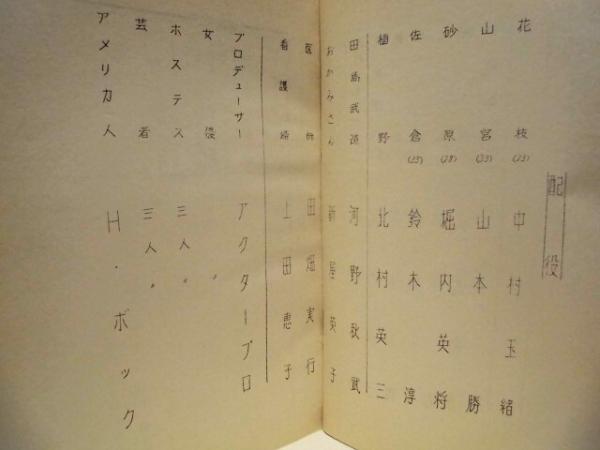 配役
花枝(23) 中村玉緒
山宮(23) 山本勝
砂原(28) 堀内英将
佐倉(23) 鈴木淳
植野 北村英三
田島武造 河野秋武
おかみさん 新屋英子
医師 田畑実行
看護婦 上田恵子
プロデューサー アクタープロ
女優 〃
ホステス 三人 〃
芸者 三人 〃
アメリカ人 H・ボック